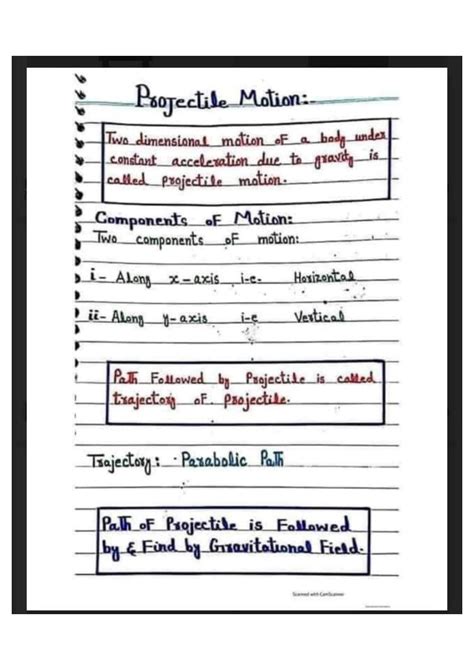 Projectile Motion:-
Two dimensional motion of a body under
constant acceleration due to gravity is
called projectile motion.
Components of Motion:
Two components of motion:
i- Along x-axis i-e. Horizontal
ii- Along y-axis i-e Vertical
Path Followed by Projectile is called
trajectory of Projectile.
Trajectory: Parabolic Path
Path of Projectile is Followed
by & Find by Gravitational Field.
Scanned with CamScanner